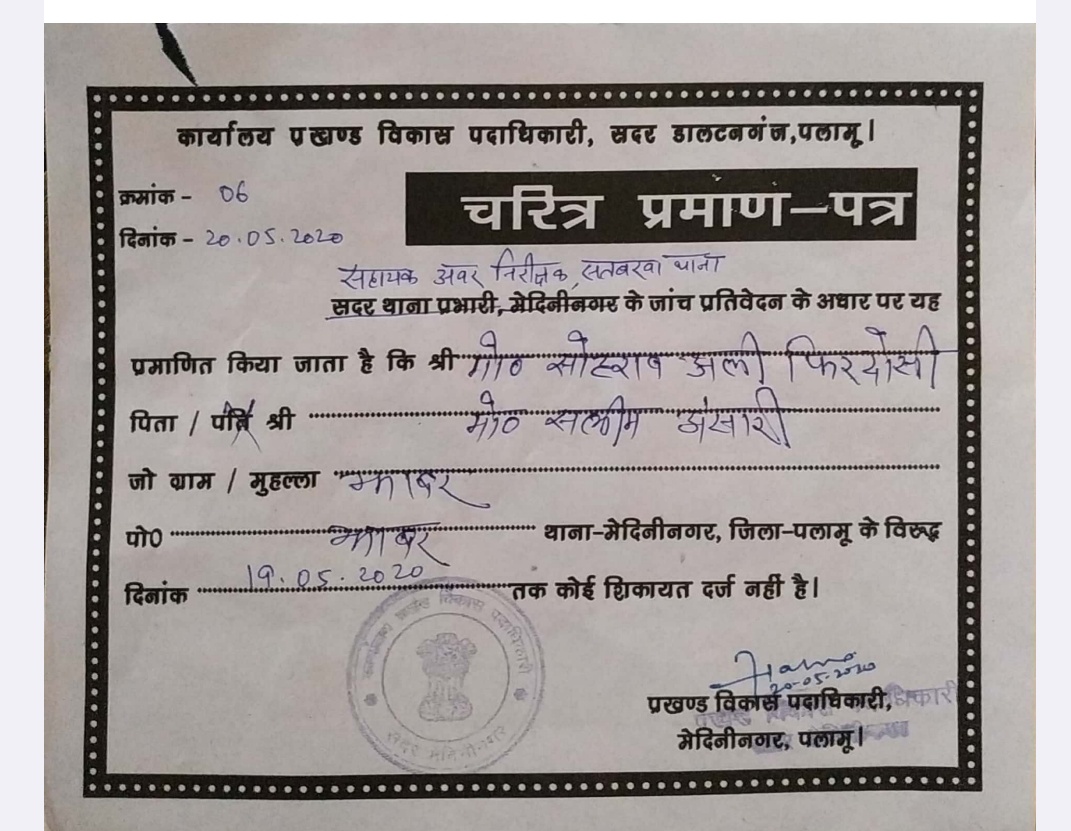 कार्यालय प्रखण्ड विकास पदाधिकारी, सदर डालटनगंज,पलामू।
क्रमांक - 06
चरित्र प्रमाण-पत्र
दिनांक - 20.05.2020
सहायक अवर निरीक्षक, सतबरवा थाना
सदर थाना प्रभारी, मेदिनीनगर के जांच प्रतिवेदन के अधार पर यह
प्रमाणित किया जाता है कि श्री मो० सोहराब अली फिरदोसी
पिता / पति श्री मो० सलीम अंसारी
जो ग्राम / मुहल्ला झाबर
पो0 झाबर थाना-मेदिनीनगर, जिला-पलामू के विरूद्ध
दिनांक 19.05.2020 तक कोई शिकायत दर्ज नहीं है।
कार्यालय प्रखंड विकास पदाधिकारी
सदर मेदिनीनगर
20-05-2020
प्रखण्ड विकास पदाधिकारी,
मेदिनीनगर, पलामू।